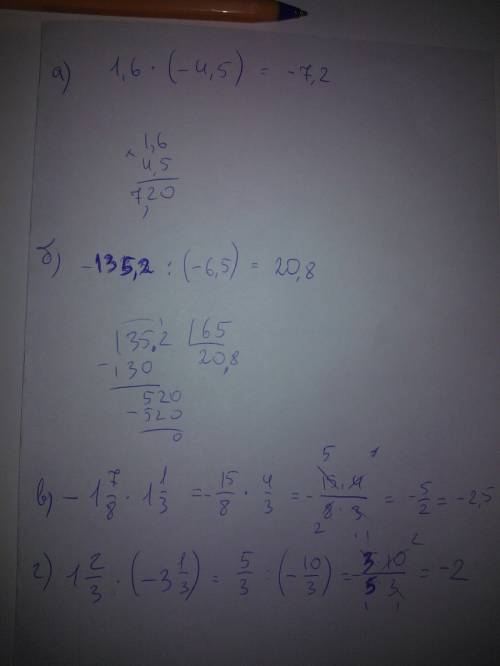 а) 1,6 · (-4,5) = -7,2
× 1,6
4,5
7,20
б) -135,2 : (-6,5) = 20,8
135,2 | 65
-130 20,8
520
-520
0
в) -1 7/8 · 1 1/3 = -15/8 · 4/3 = -15·4/8·3 = -5/2 = -2,5
г) 1 2/3 : (-3 1/3) = 5/3 : (-10/3) = 3·10/5·3 = -2